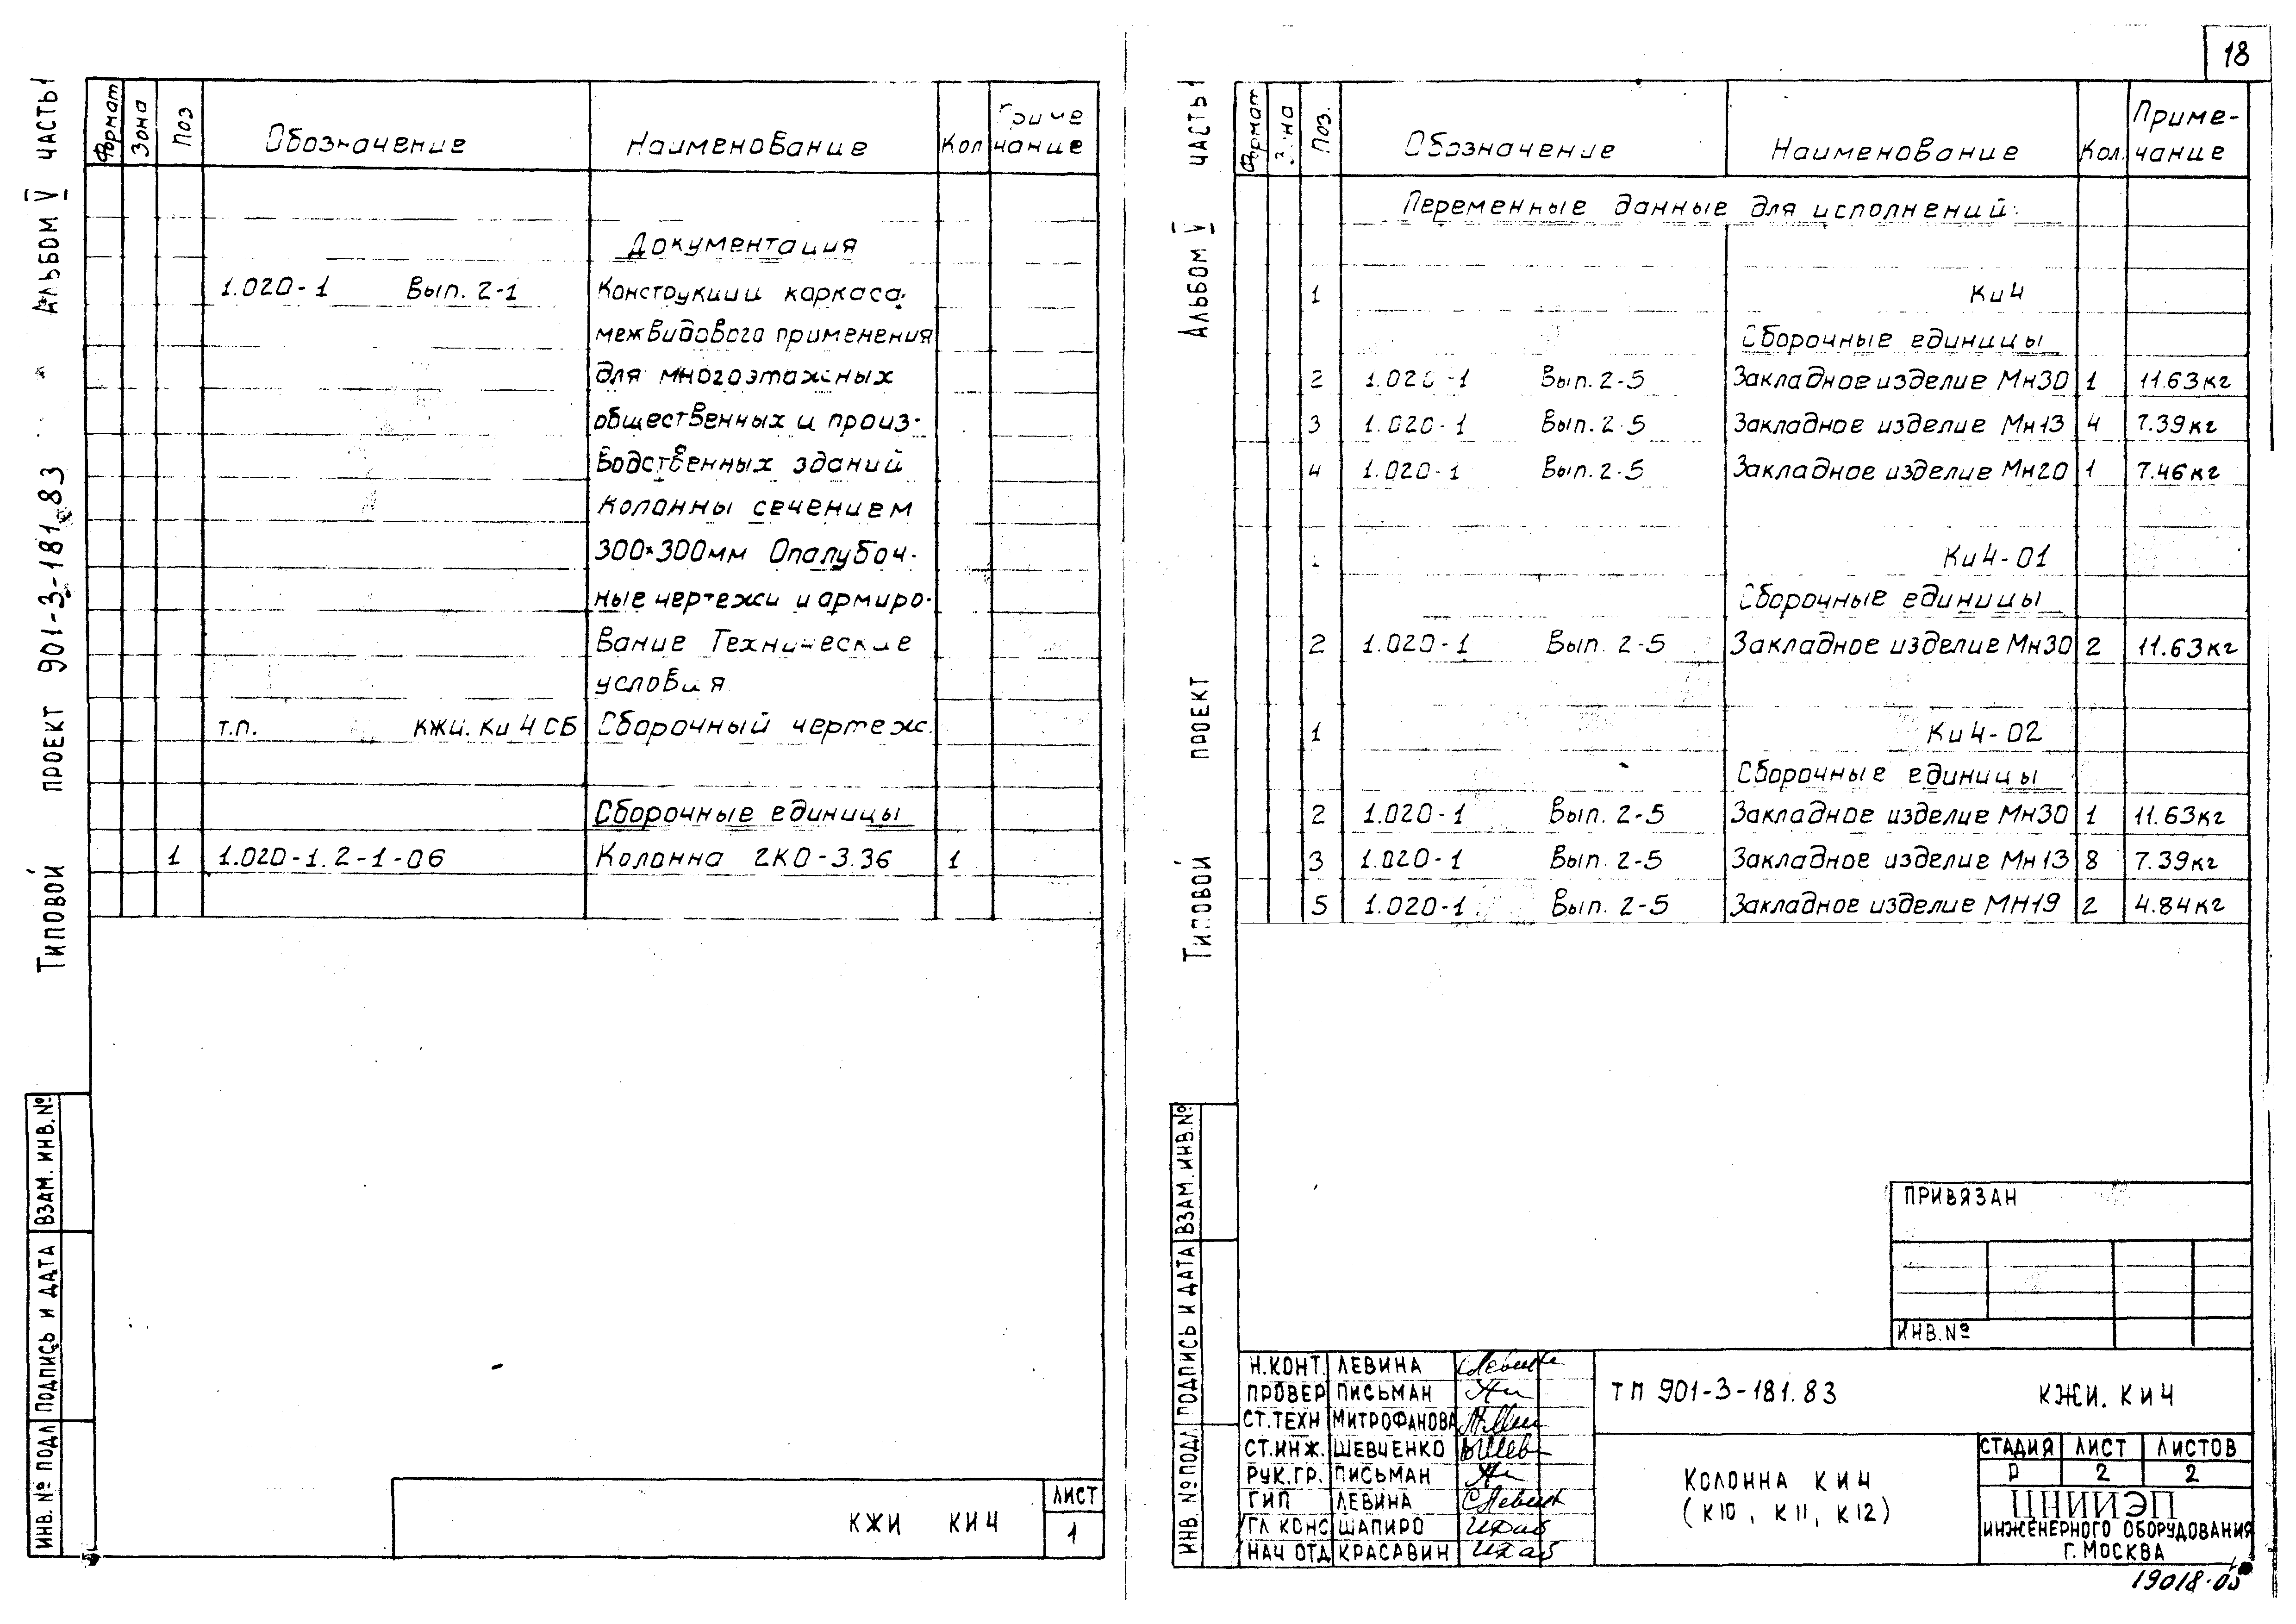 18
Типовой проект 901-3-181.83 Альбом V часть 1
Формат Зона Поз Обозначение Наименование Кол Приме
чание
Документация
1.020-1 Вып. 2-1 Конструкции каркаса
межвидового применения
для многоэтажных
общественных и произ-
водственных зданий
Колонны сечением
300×300мм Опалубоч-
ные чертежи и армиро-
вание Технические
условия
т.п. КЖИ. Ки 4 СБ Сборочный чертеж.
Сборочные единицы
1 1.020-1. 2-1-06 Колонна 2КО-3.36 1
ИНВ. № ПОДЛ ПОДПИСЬ И ДАТА ВЗАМ. ИНВ.№
КЖИ КИ4
ЛИСТ
1
Типовой проект Альбом V часть 1
Формат Поз. Обозначение Наименование Кол. Приме-
чание
Переменные данные для исполнений:
1 Ки4
Сборочные единицы
2 1.020-1 Вып. 2-5 Закладное изделие Мн30 1 11.63кг
3 1.020-1 Вып. 2-5 Закладное изделие Мн13 4 7.39кг
4 1.020-1 Вып. 2-5 Закладное изделие Мн20 1 7.46кг
Ки4-01
Сборочные единицы
2 1.020-1 Вып. 2-5 Закладное изделие Мн30 2 11.63кг
1 Ки4-02
Сборочные единицы
2 1.020-1 Вып. 2-5 Закладное изделие Мн30 1 11.63кг
3 1.020-1 Вып. 2-5 Закладное изделие Мн13 8 7.39кг
5 1.020-1 Вып. 2-5 Закладное изделие МН19 2 4.84кг
ИНВ. № ПОДЛ ПОДПИСЬ И ДАТА ВЗАМ. ИНВ.№
ПРИВЯЗАН
ИНВ.№
Н.КОНТ. ЛЕВИНА
ПРОВЕР ПИСЬМАН
СТ.ТЕХН МИТРОФАНОВА
СТ.ИНЖ. ШЕВЧЕНКО
РУК.ГР. ПИСЬМАН
ГИП ЛЕВИНА
ГЛ КОНС ШАПИРО
НАЧ ОТД КРАСАВИН
ТП 901-3-181.83 КЖИ. КИ4
КОЛОННА КИ4
(К10, К11, К12)
СТАДИЯ ЛИСТ ЛИСТОВ
Р 2 2
ЦНИИЭП
ИНЖЕНЕРНОГО ОБОРУДОВАНИЯ
Г. МОСКВА
19018-05